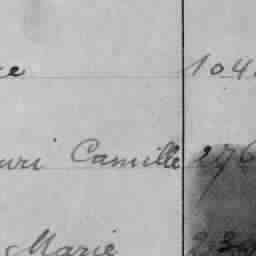 ce 104
uri Camille 276
Marie 230